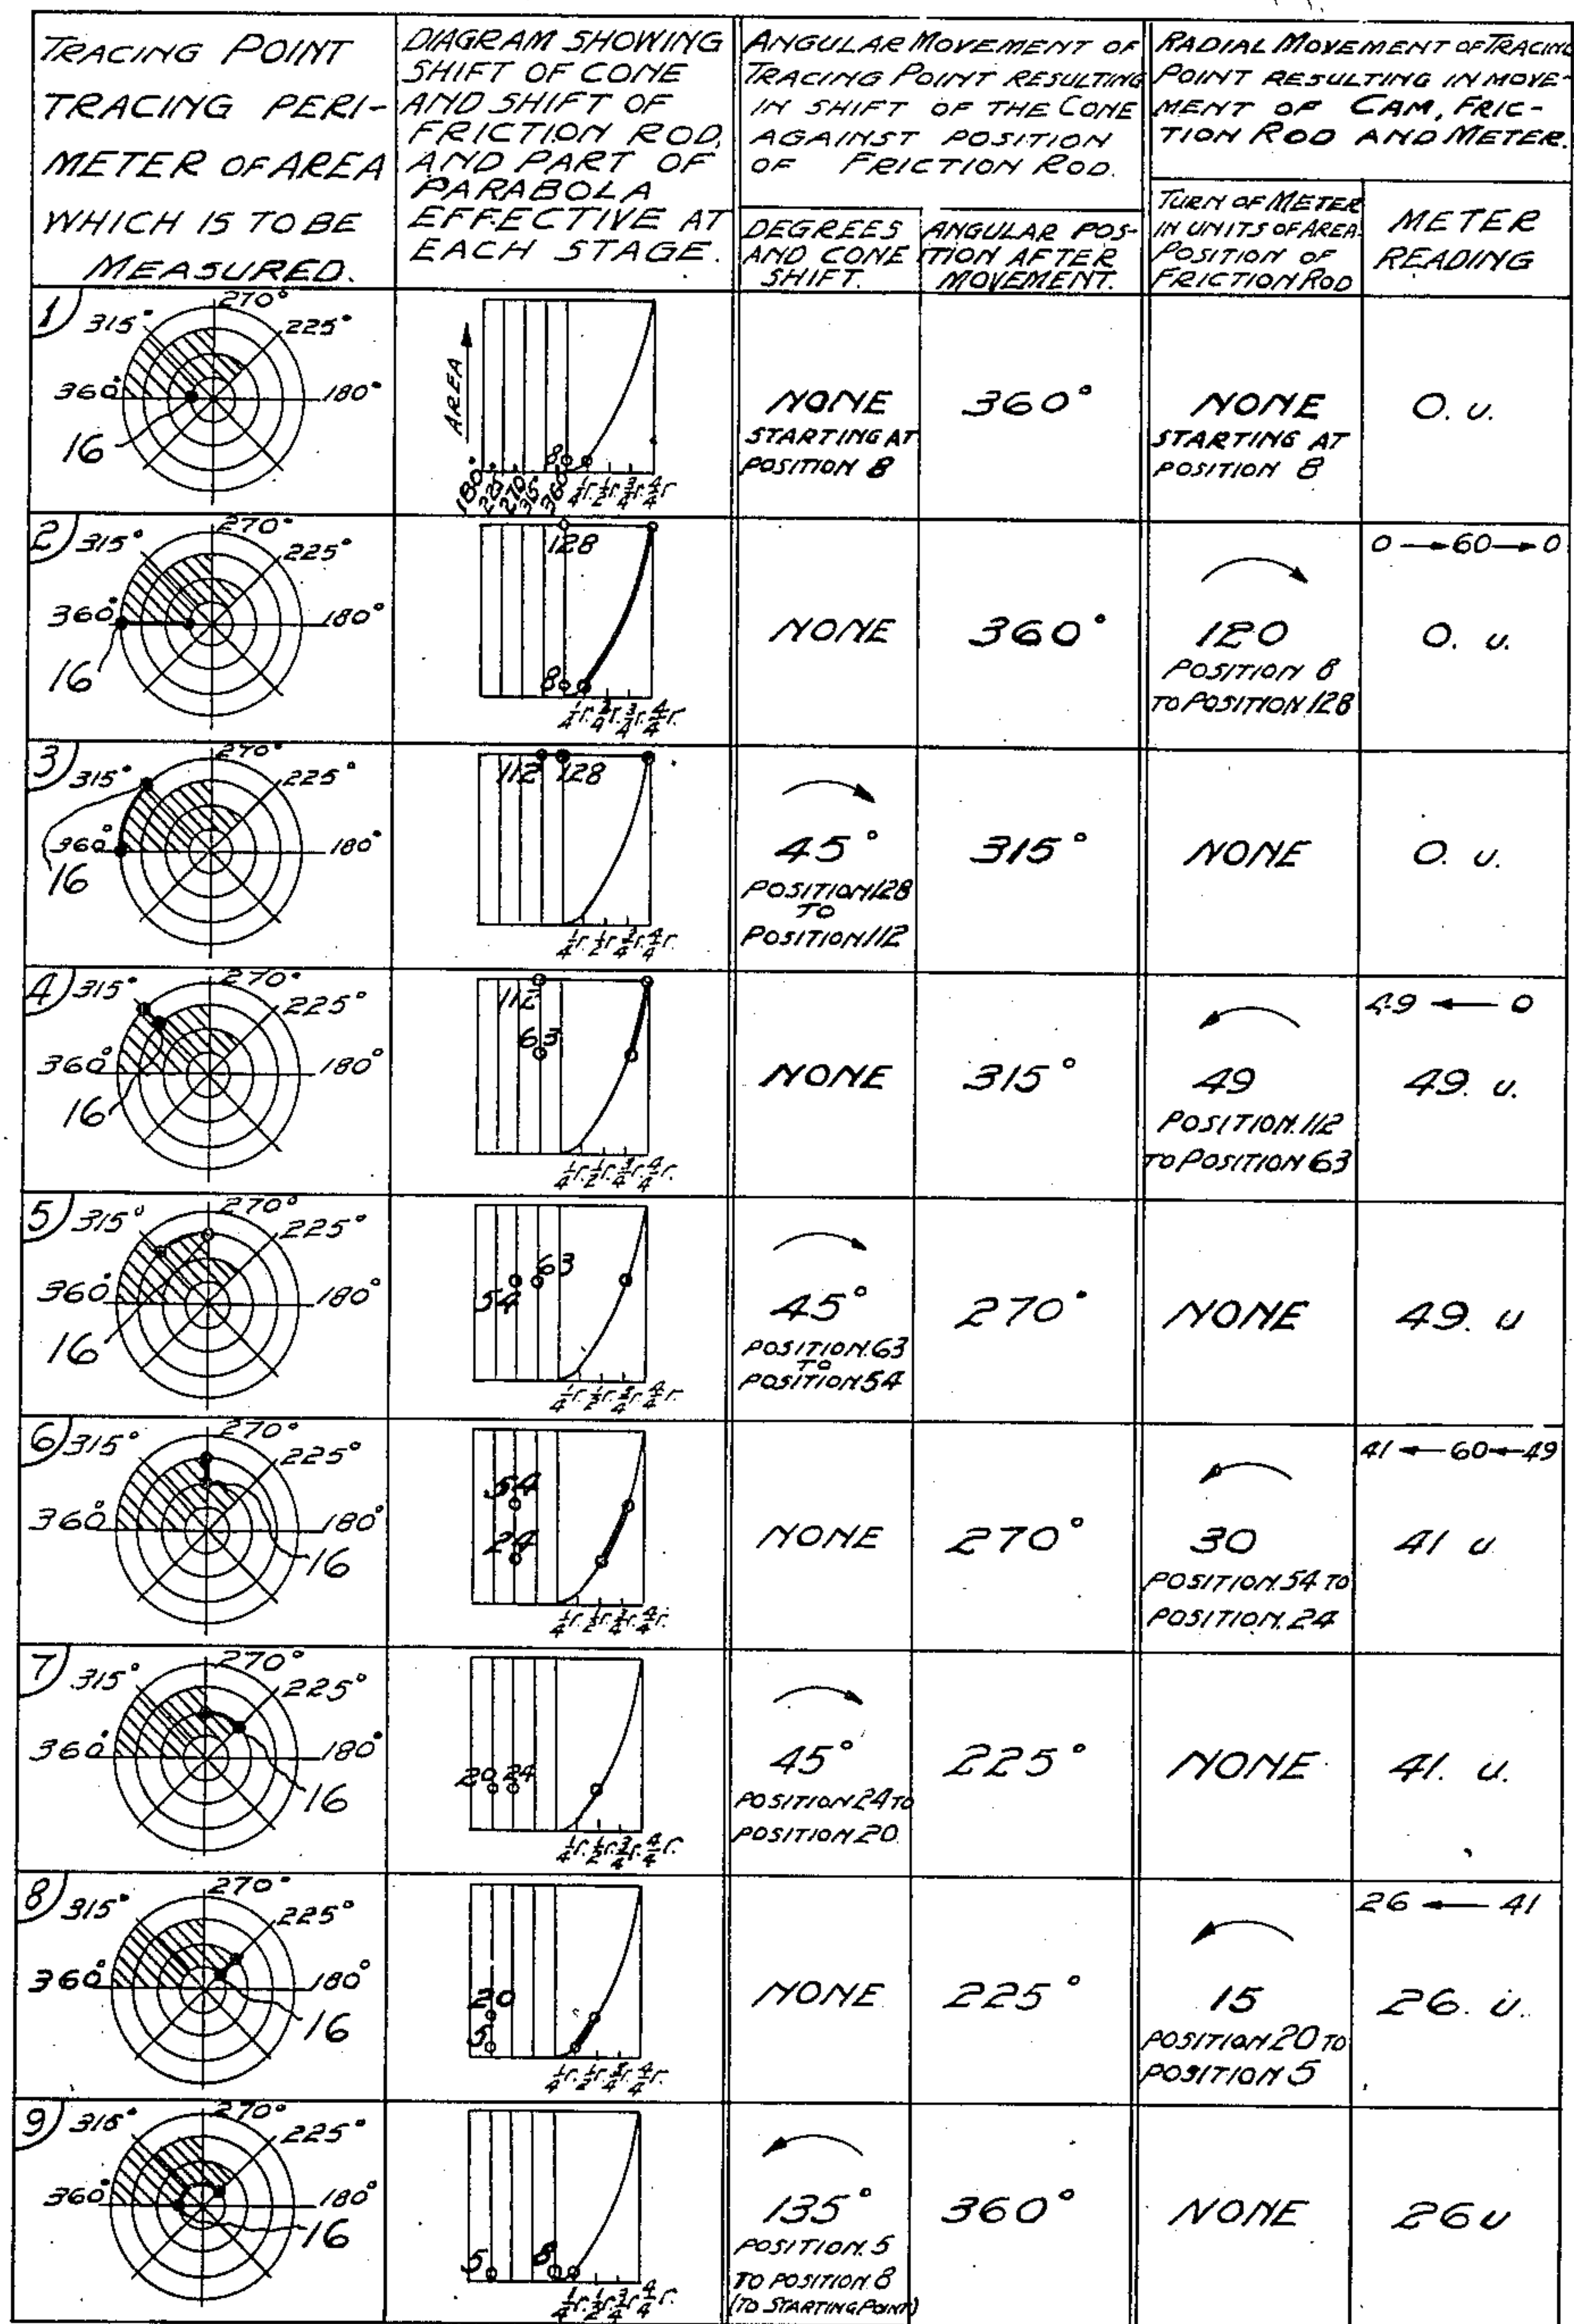 TRACING POINT
TRACING PERI-
METER OF AREA
WHICH IS TO BE
MEASURED.
DIAGRAM SHOWING
SHIFT OF CONE
AND SHIFT OF
FRICTION ROD,
AND PART OF
PARABOLA
EFFECTIVE AT
EACH STAGE.
ANGULAR MOVEMENT OF
TRACING POINT RESULTING
IN SHIFT OF THE CONE
AGAINST POSITION
OF FRICTION ROD.
DEGREES
AND CONE
SHIFT.
ANGULAR POS-
ITION AFTER
MOVEMENT.
RADIAL MOVEMENT OF TRACING
POINT RESULTING IN MOVE-
MENT OF CAM, FRIC-
TION ROD AND METER.
TURN OF METER
IN UNITS OF AREA.
POSITION OF
FRICTION ROD
METER
READING
1) 315° 270° 225°
360° 180°
16
AREA
8
180° 225° 270° 315° 360° 1/4r. 1/2r. 3/4r. 4/4r.
NONE
STARTING AT
POSITION 8
360°
NONE
STARTING AT
POSITION 8
0. u.
2) 315° 270° 225°
360° 180°
16
128
8
1/4r. 2/4r. 3/4r. 4/4r.
NONE
360°
120
POSITION 8
TO POSITION 128
0 → 60 → 0
0. u.
3) 315° 270° 225°
360° 180°
16
112 128
1/4r. 1/2r. 3/4r. 4/4r.
45°
POSITION 128
TO
POSITION 112
315°
NONE
0. u.
4) 315° 270° 225°
360° 180°
16
112
63
1/4r. 1/2r. 3/4r. 4/4r.
NONE
315°
49
POSITION. 112
TO POSITION 63
49 ← 0
49. u.
5) 315° 270° 225°
360° 180°
16
63
54
1/4r. 1/2r. 3/4r. 4/4r.
45°
POSITION. 63
TO
POSITION 54
270°
NONE
49. u
6) 315° 270° 225°
360° 180°
16
54
24
1/4r. 1/2r. 3/4r. 4/4r.
NONE
270°
30
POSITION. 54 TO
POSITION. 24
41 ← 60 ← 49
41 u
7) 315° 270° 225°
360° 180°
16
20 24
1/4r. 1/2r. 3/4r. 4/4r.
45°
POSITION 24 TO
POSITION 20.
225°
NONE
41. u.
8) 315° 270° 225°
360° 180°
16
20
5
1/4r. 1/2r. 3/4r. 4/4r.
NONE
225°
15
POSITION. 20 TO
POSITION 5
26 ← 41
26. u.
9) 315° 270° 225°
360° 180°
16
5 8
1/4r. 1/2r. 3/4r. 4/4r.
135°
POSITION. 5
TO POSITION. 8
(TO STARTING POINT)
360°
NONE
26 u